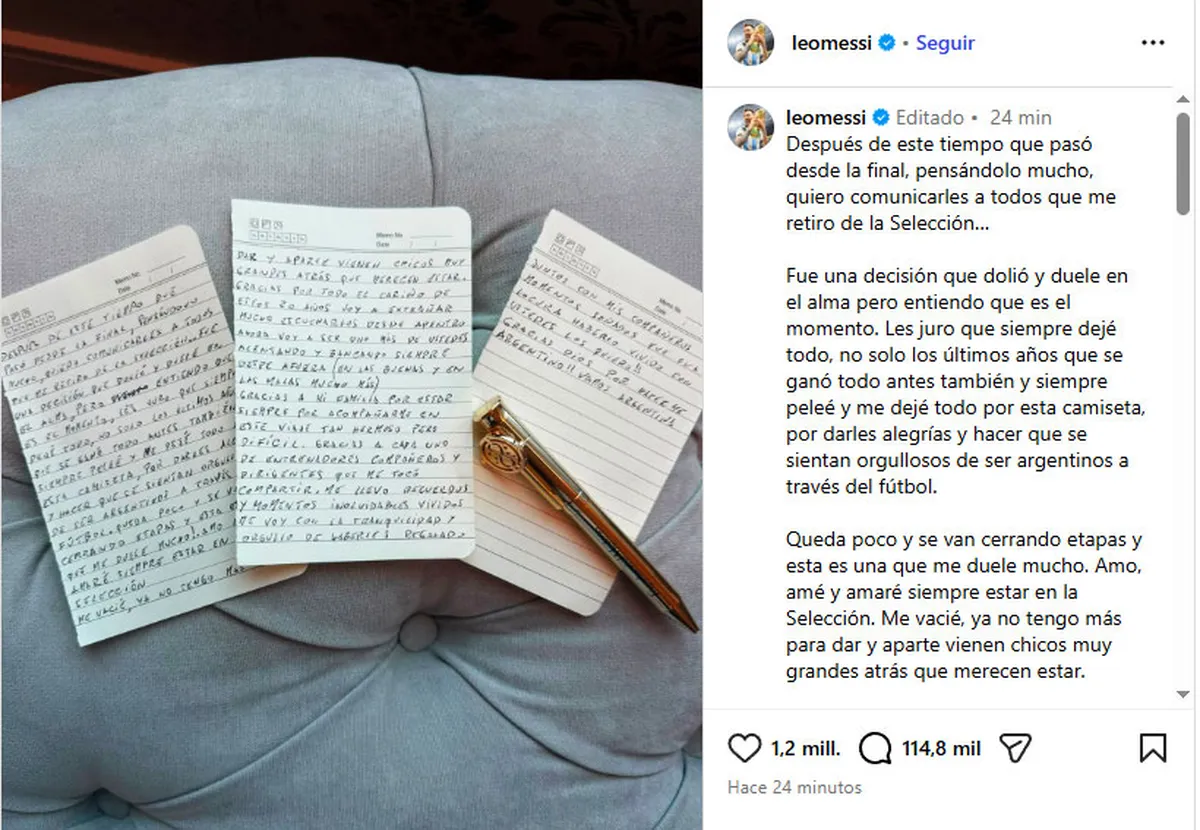 Memo No.
Date / /
DESPUES DE ESTE TIEMPO QUE
PASO DESDE LA FINAL, PENSANDOLO
MUCHO, QUIERO COMUNICARLES A TODOS
QUE ME RETIRO DE LA SELECCION... FUE
UNA DECISIÓN QUE DOLIÓ Y DUELE EN
EL ALMA, PERO ENTIENDO QUE
ES EL MOMENTO. LES JURO QUE SIEMPRE
DEJÉ TODO, NO SOLO LOS ULTIMOS AÑOS
QUE SE GANÓ TODO ANTES TAMBIEN
SIEMPRE PELEÉ Y ME DEJÉ TODO
ESTA CAMISETA, POR DARLES ALE
Y HACER QUE SE SIENTAN ORGU
DE SER ARGENTINOS A TRAVÉS
FÚTBOL. QUEDA POCO Y SE V
CERRANDO ETAPAS Y ESTA E
QUE ME DUELE MUCHO. AMO
AMARÉ SIEMPRE ESTAR EN
SELECCIÓN
ME VACIÉ, YA NO TENGO MÁS
Memo No.
Date / /
DAR Y APARTE VIENEN CHICOS MUY
GRANDES ATRÁS QUE MERECEN ESTAR.
GRACIAS POR TODO EL CARIÑO DE
ESTOS 20 AÑOS VOY A EXTRAÑAR
MUCHO ESCUCHARLOS DESDE ADENTRO
AHORA VOY A SER UNO MÁS DE USTEDES
ALENTANDO Y BANCANDO SIEMPRE
DESDE AFUERA (EN LAS BUENAS Y EN
LAS MALAS MUCHO MÁS)
GRACIAS A MI FAMILIA POR ESTAR
SIEMPRE POR ACOMPAÑARME EN
ESTE VIAJE TAN HERMOSO PERO
DIFÍCIL. GRACIAS A CADA UNO
DE ENTRENADORES COMPAÑEROS Y
DIRIGENTES QUE ME TOCÓ
COMPARTIR. ME LLEVO RECUERDOS
Y MOMENTOS INOLVIDABLES VIVIDOS
ME VOY CON LA TRANQUILIDAD Y
ORGULLO DE HABERLES REGALADO
Memo No.
Date
JUNTOS CON MIS COMPAÑEROS
MOMENTOS SOÑADOS FUE
LOCURA HABERLO VIVIDO CON
USTEDES LOS QUIERO!!
GRACIAS DIOS POR HACERME
ARGENTINO!! VAMOS ARGENTINA
leomessi • Seguir
leomessi Editado • 24 min
Después de este tiempo que pasó
desde la final, pensándolo mucho,
quiero comunicarles a todos que me
retiro de la Selección...
Fue una decisión que dolió y duele en
el alma pero entiendo que es el
momento. Les juro que siempre dejé
todo, no solo los últimos años que se
ganó todo antes también y siempre
peleé y me dejé todo por esta camiseta,
por darles alegrías y hacer que se
sientan orgullosos de ser argentinos a
través del fútbol.
Queda poco y se van cerrando etapas y
esta es una que me duele mucho. Amo,
amé y amaré siempre estar en la
Selección. Me vacié, ya no tengo más
para dar y aparte vienen chicos muy
grandes atrás que merecen estar.
1,2 mill. 114,8 mil
Hace 24 minutos